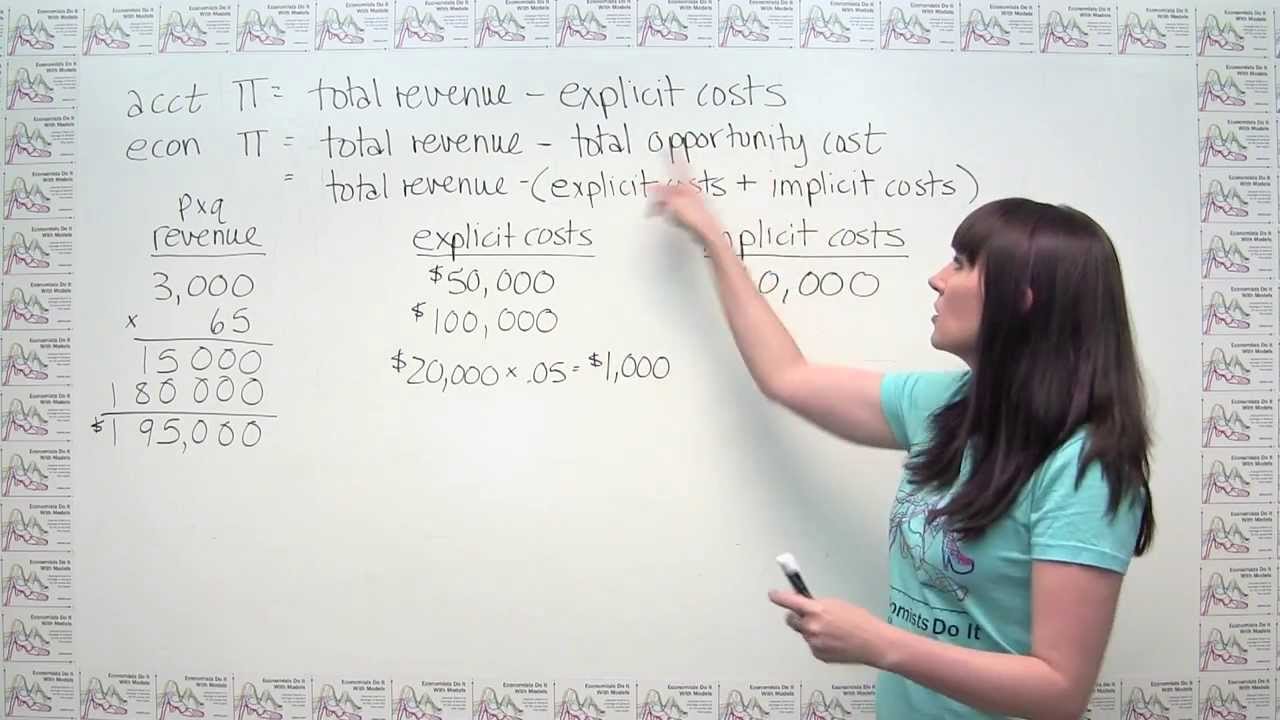 acct π = total revenue - explicit costs
econ π = total revenue - total opportunity cost
= total revenue - (explicit costs + implicit costs)
pxq
revenue
3,000
x 65
15000
180000
$195,000
explicit costs
$50,000
$100,000
$20,000 x .05 = $1,000
costs
0,000
Economists Do It
With Models
omists Do It